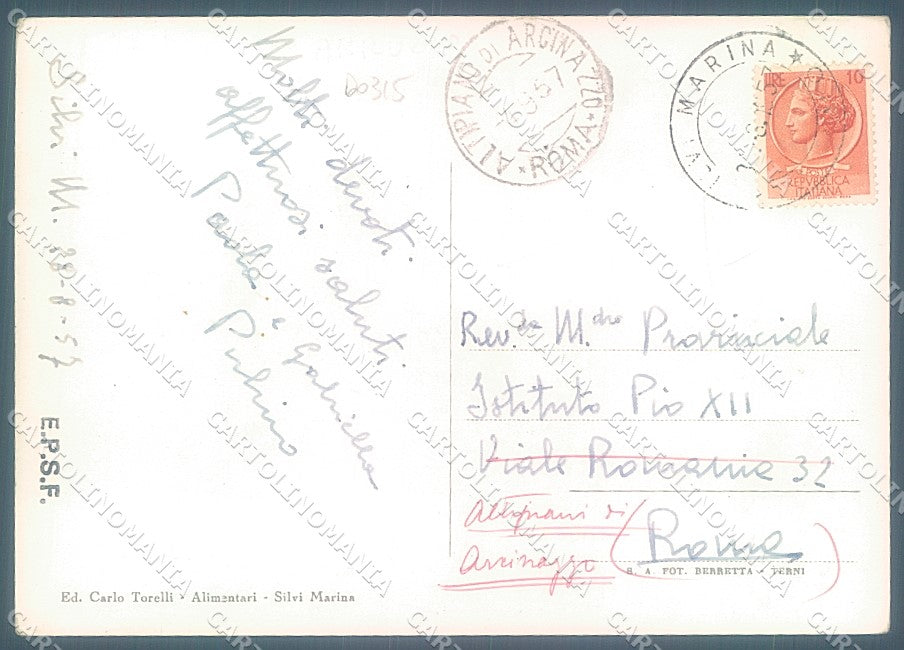 Silvi M. 28-8-57
Molti devoti
affettuosi saluti
Paola e Gabriella
D0315
ALTIPIANO DI ARCINAZZO * ROMA *
57
MARINA *
LIRE 10
POSTE
REPVBBLICA
ITALIANA
Rev.da M.dre Provinciale
Istituto Pio XII
Viale Romania 32
Altipiani di
Arcinazzo
(Roma)
S. A. FOT. BERRETTA - TERNI
E.P.S.F.
Ed. Carlo Torelli - Alimentari - Silvi Marina
CARTOLINOMANIA